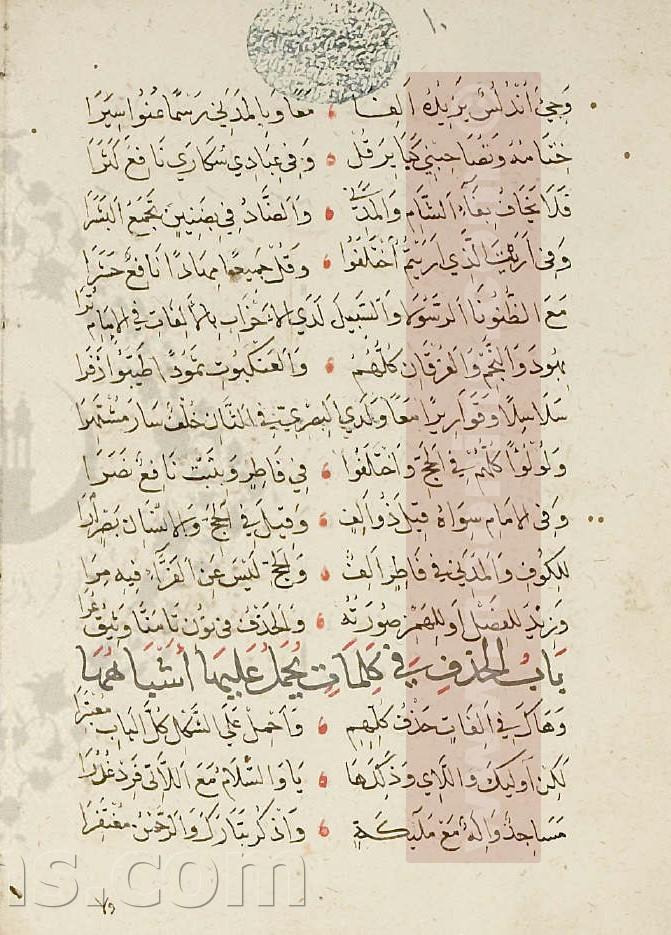 ١٠
وَجِئَ أَنْدَلُسٌ يَزِيدُهُ أَلِفًا مَعًا وَبِالْمَدَنِي رَسْمًا عُنُوا سِيَرَا
خِتَامُهُ وَتُصَاحِبْنِي كَبَايِرَ قُلْ وَفِي عِبَادِي سُكَارَى نَافِعٌ كَثَرَا
فَلَا يَخَافُ بِفَاءِ الشَّامِ وَالْمَدَنِي وَالضَّادُ فِي بِضَنِينٍ تَجْمَعُ الْبَشَرَا
وَفِي أَرَيْتَ الَّذِي أَرَيْتُمُ اخْتَلَفُوا وَقُلْ جَمِيعًا مِهَادًا نَافِعٌ حَشَرَا
مَعَ الظُّنُونَا الرَّسُولَا وَالسَّبِيلَ لَدَى الْأَحْزَابِ بِالْأَلِفَاتِ فِي الْإِمَامِ تُرَا
بِهُودَ وَالنَّجْمِ وَالْفُرْقَانِ كُلُّهُمُ وَالْعَنْكَبُوتِ ثَمُودًا طَيَّبُوا ذَفَرَا
سَلَاسِلًا وَقَوَارِيرًا مَعًا وَلَدَى الْبَصْرِيِّ فِي الثَّانِ خُلْفٌ سَارَ مُشْتَهِرَا
وَلُؤْلُؤًا كُلُّهُمْ فِي الْحَجِّ وَاخْتَلَفُوا فِي فَاطِرٍ وَبِثَبْتٍ نَافِعٌ نَصَرَا
وَفِي الْإِمَامِ سِوَاهُ قِيلَ ذُو أَلِفٍ وَقِيلَ فِي الْحَجِّ وَالْإِنْسَانِ بَصْرٍ أَرَا
لِلْكُوفِ وَالْمَدَنِي فِي فَاطِرٍ أَلِفٌ وَالْحَجِّ لَيْسَ عَنِ الْفَرَّاءِ فِيهِ مِرَا
وَزِيدَ لِلْفَصْلِ أَوْ لِلْهَمْزِ صُورَتُهُ وَالْحَذْفُ فِي نُونِ تَأْمَنَّا وَثِيقُ عُرَا
بَابُ الْحَذْفِ فِي كَلِمَاتٍ يُحْمَلُ عَلَيْهَا أَشْبَاهُهَا
وَهَاكَ فِي أَلِفَاتٍ حَذْفُ كُلِّهِمِ وَاحْمِلْ عَلَى الشَّكْلِ كُلَّ الْبَابِ مُعْتَبِرَا
لَكِنْ أُولَئِكَ وَاللَّائِي وَذَلِكَ هَا يَا وَالسَّلَامُ مَعَ اللَّاتِي فَرِدْ غُدُرَا
مَسَاجِدٌ وَإِلَهٌ مَعْ مَلَيِكَةٍ وَاذْكُرْ تَبَارَكَ وَالرَّحْمَنُ مُغْتَفِرَا